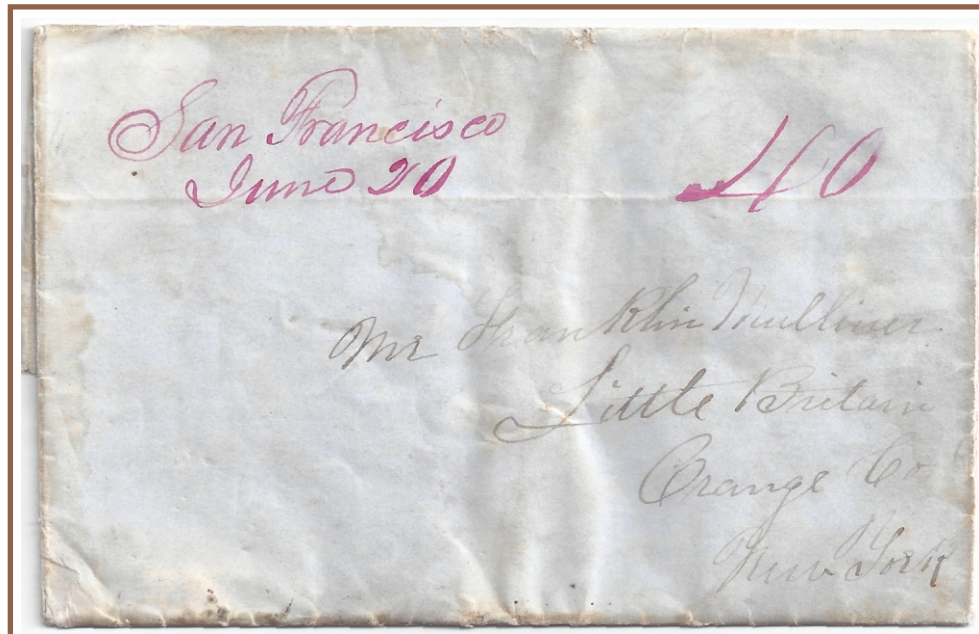 San Francisco
June 20
40
Mr Franklin Mulliner
Little Britain
Orange Co
New York